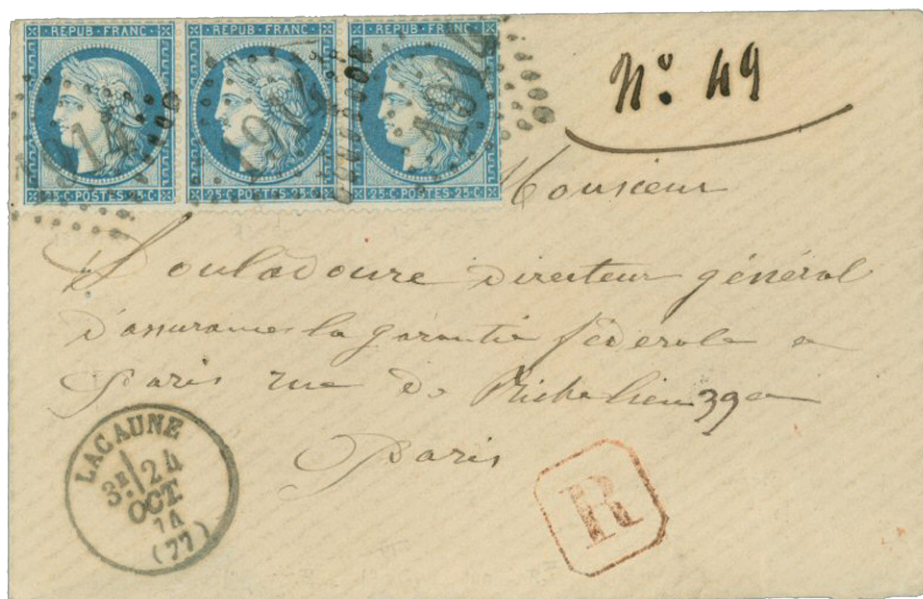 REPUB·FRANC· REPUB·FRANC· REPUB·FRANC·
1914 1914 1914
25·C·POSTES·25·C 25·C·POSTES·25·C 25·C·POSTES·25·C
N° 49
Monsieur
Souladoure directeur général
d'assurances la garantie féderale a
paris rue de Richelieu 39 a
Paris
LACAUNE
3E 24
OCT.
74
(77)
R